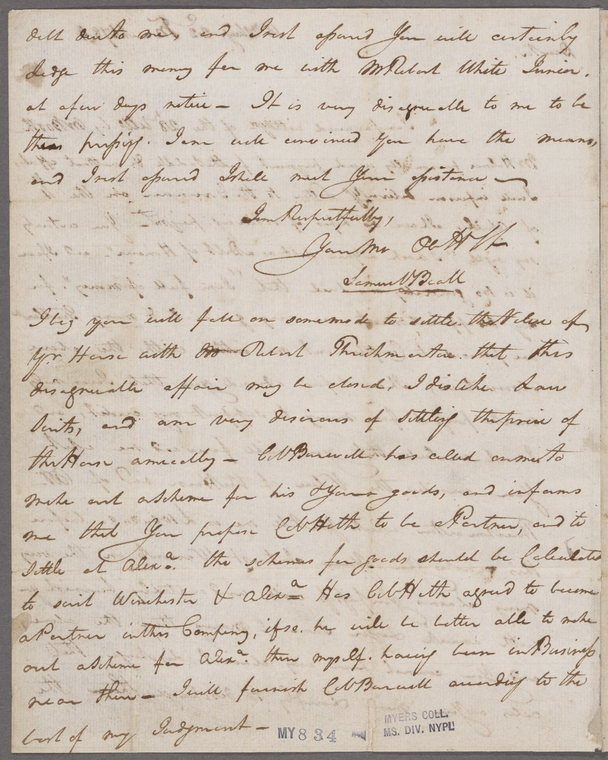 debt due to me, and I rest assured You will certainly
lodge this money for me with Mr. Robert White Junior.
at a few days notice — It is very disagreeable to me to be
thus pressing. I am well convinced You have the means,
and I rest assured I shall meet Your assistance —
I am Respectfully,
Your Mo Ob H St
Samuel Beall
I beg you will fall on some mode to settle the Value of
Yr. Horse with Robert Throckmorton that this
disagreeable affair may be closed, I dislike Law
Suits, and am very desirous of settling the price of
the Horse amicably — Colo. Burwell has called on me to
make out a Scheme for his & Your goods, and informs
me that You propose Colo. Heth to be a Partner, and to
settle at Alexa. the schemes for goods should be Calculated
to suit Winchester & Alexa — Has Colo. Heth agreed to become
a Partner in this Company, if so he will be better able to make
out a Scheme for Alexa. than myself. having been in Business
near there — I will furnish Colo. Burwell according to the
best of my Judgment —
MY 834
MYERS COLL.
MS. DIV. NYPL